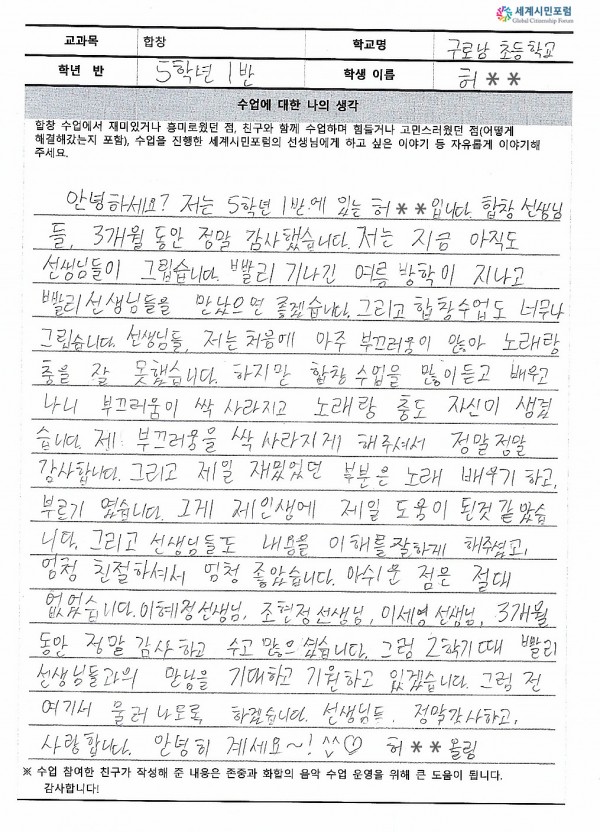 세계시민포럼
Global Citizenship Forum
교과목 합창 학교명 구로남 초등학교
학년 반 5학년 1반 학생 이름 허**
수업에 대한 나의 생각
합창 수업에서 재미있거나 흥미로웠던 점, 친구와 함께 수업하며 힘들거나 고민스러웠던 점(어떻게
해결해갔는지 포함), 수업을 진행한 세계시민포럼의 선생님에게 하고 싶은 이야기 등 자유롭게 이야기해
주세요.
안녕하세요? 저는 5학년 1반에 있는 허**입니다. 합창 선생님
들, 3개월 동안 정말 감사했습니다. 저는 지금 아직도
선생님들이 그립습니다. 빨리 기나긴 여름 방학이 지나고
빨리 선생님들을 만났으면 좋겠습니다. 그리고 합창수업도 너무나
그립습니다. 선생님들, 저는 처음에 아주 부끄러움이 많아 노래랑
춤을 잘 못했습니다. 하지만 합창 수업을 많이 듣고 배우고
나니 부끄러움이 싹 사라지고 노래랑 춤도 자신이 생겼
습니다. 제 부끄러움을 싹 사라지게 해주셔서 정말정말
감사합니다. 그리고 제일 재밌었던 부분은 노래 배우기 하고,
부르기 였습니다. 그게 제인생에 제일 도움이 된것 같았습
니다. 그리고 선생님들도 내용을 이해를 잘하게 해주셨고,
엄청 친절하셔서 엄청 좋았습니다. 아쉬운 점은 절대
없었습니다. 이혜정선생님, 조현정선생님, 이세영선생님, 3개월
동안 정말 감사하고 수고 많으셨습니다. 그럼 2학기때 빨리
선생님들과의 만남을 기대하고 기원하고 있겠습니다. 그럼 전
여기서 물러나도록 하겠습니다. 선생님들, 정말감사하고,
사랑합니다. 안녕히 계세요~! ^^♡ 허** 올림
※ 수업 참여한 친구가 작성해 준 내용은 존중과 화합의 음악 수업 운영을 위해 큰 도움이 됩니다.
감사합니다!